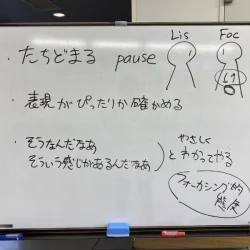 Lis Foc
・たちどまる pause
・表現がぴったりか確かめる
・そうなんだなあ
そういう感じがあるんだなあ
やさしく
とわかってやる
フォーカシング的
態度